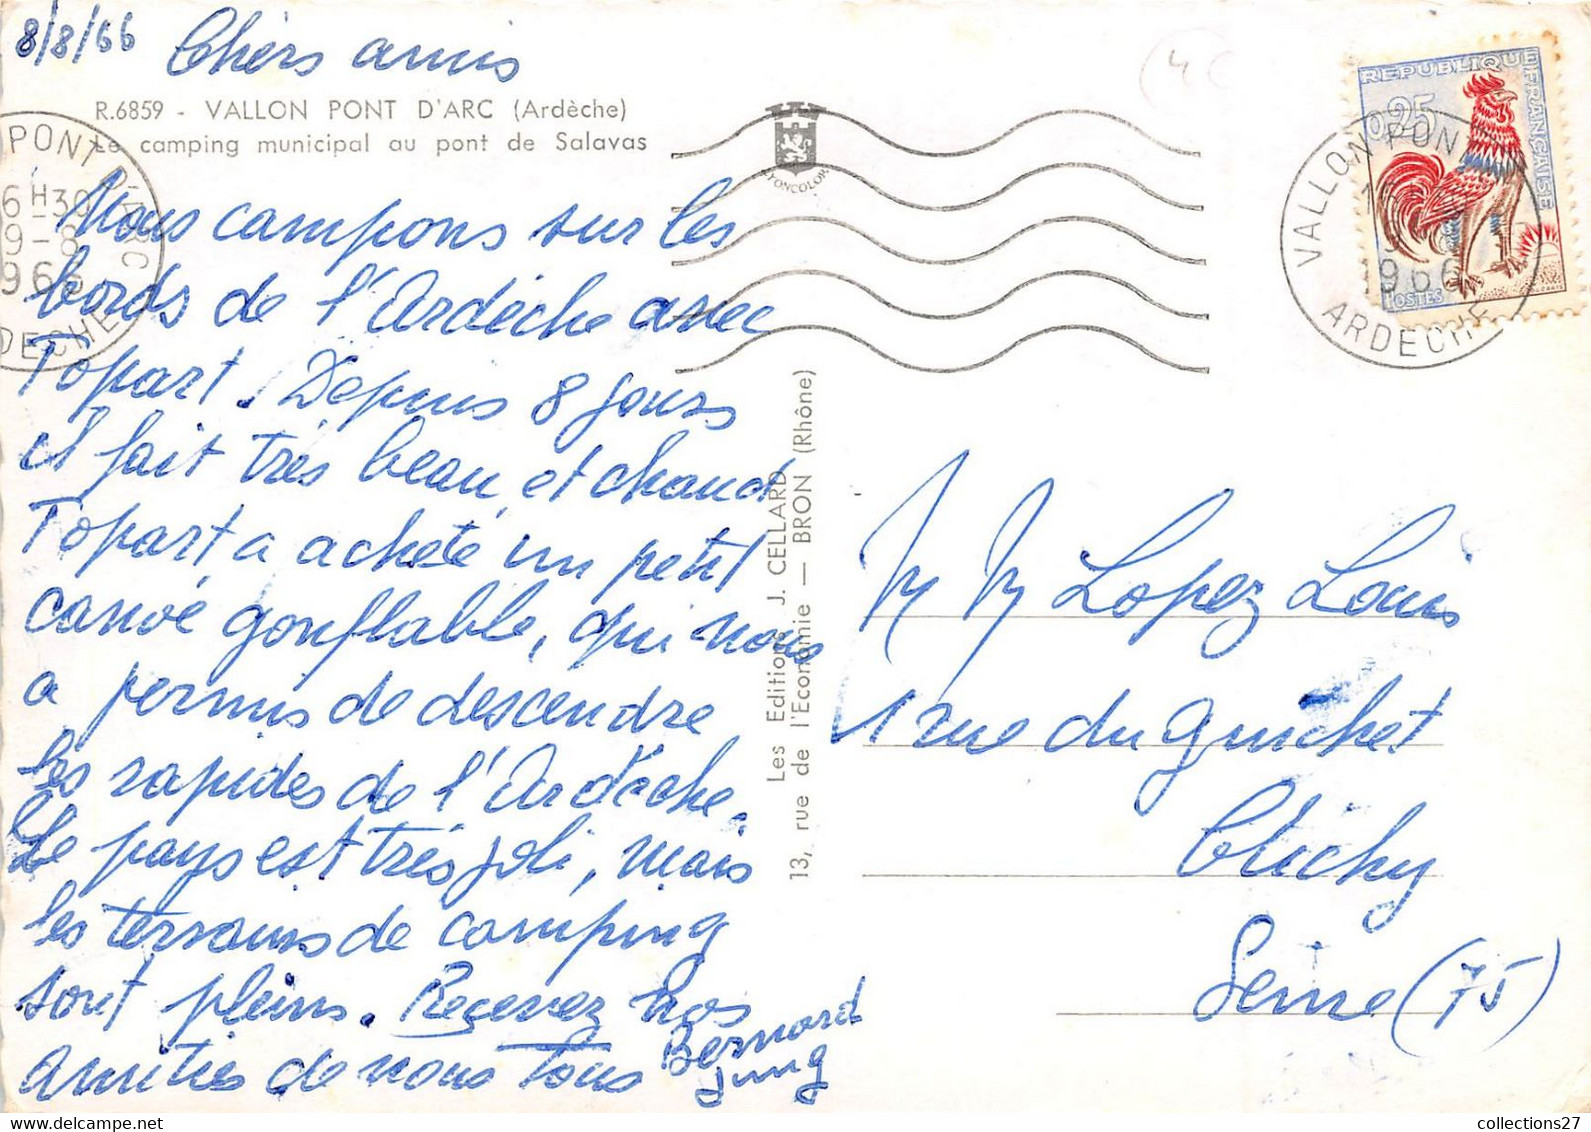 8/8/66 Chers amis
R.6859 - VALLON PONT D'ARC (Ardèche)
Le camping municipal au pont de Salavas
PONT D'ARC
6H30
9-8
966
DECHE
Nous campons sur les
bords de l'Ardèche avec
Topart. Depuis 8 jours
il fait très beau et chaud
Topart a acheté un petit
canoé gonflable, qui nous
a permis de descendre
les rapides de l'Ardèche.
Le pays est très joli, mais
les terrains de camping
sont pleins. Recevez nos
amitiés de nous tous
Bernard
Jung
YONCOLOR
Les Editions J. CELLARD
13, rue de l'Economie — BRON (Rhône)
4
REPUBLIQUE FRANÇAISE
0,25
POSTES
VALLON PON
966
ARDECHE
M M Lopez Louis
1 rue du Guichet
Clichy
Seine (75)
collections27